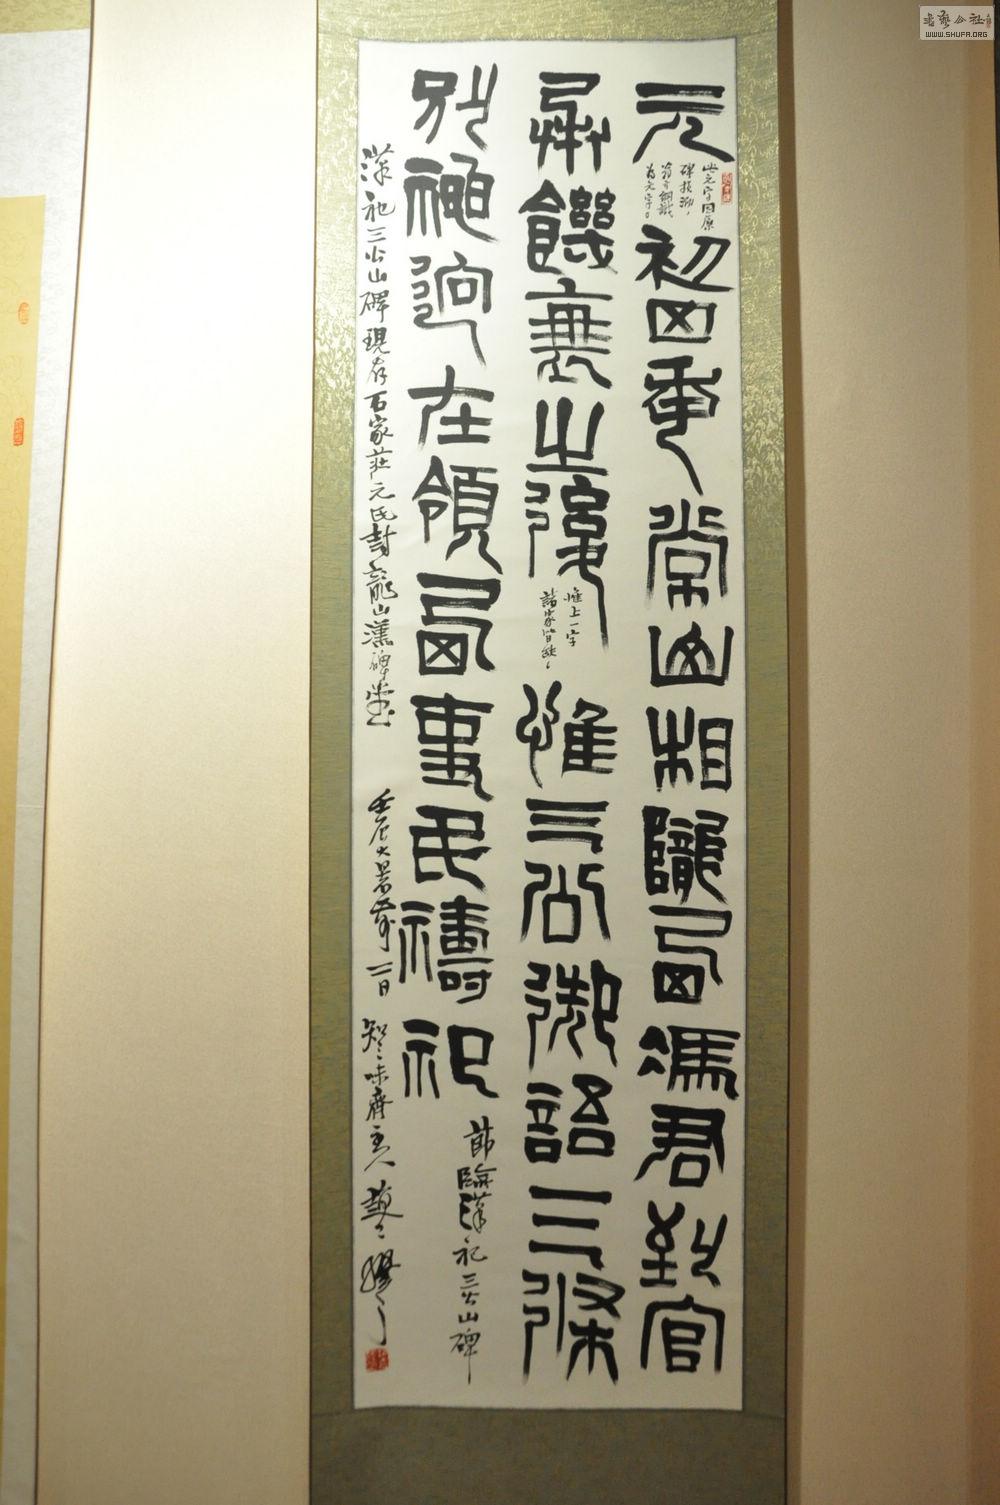 元初四年常山相隴西馮君到官
承饑衰之後惟三公御語三條
別神迥在領西吏民禱祀
此元字因原
碑損泐
翁方綱識
為元字
惟上一字
諸家皆缺
節臨漢祀三公山碑
漢祀三公山碑現存石家莊元氏封龍山漢碑堂
壬辰大暑前二日
齋主人
WWW.SHUFA.ORG